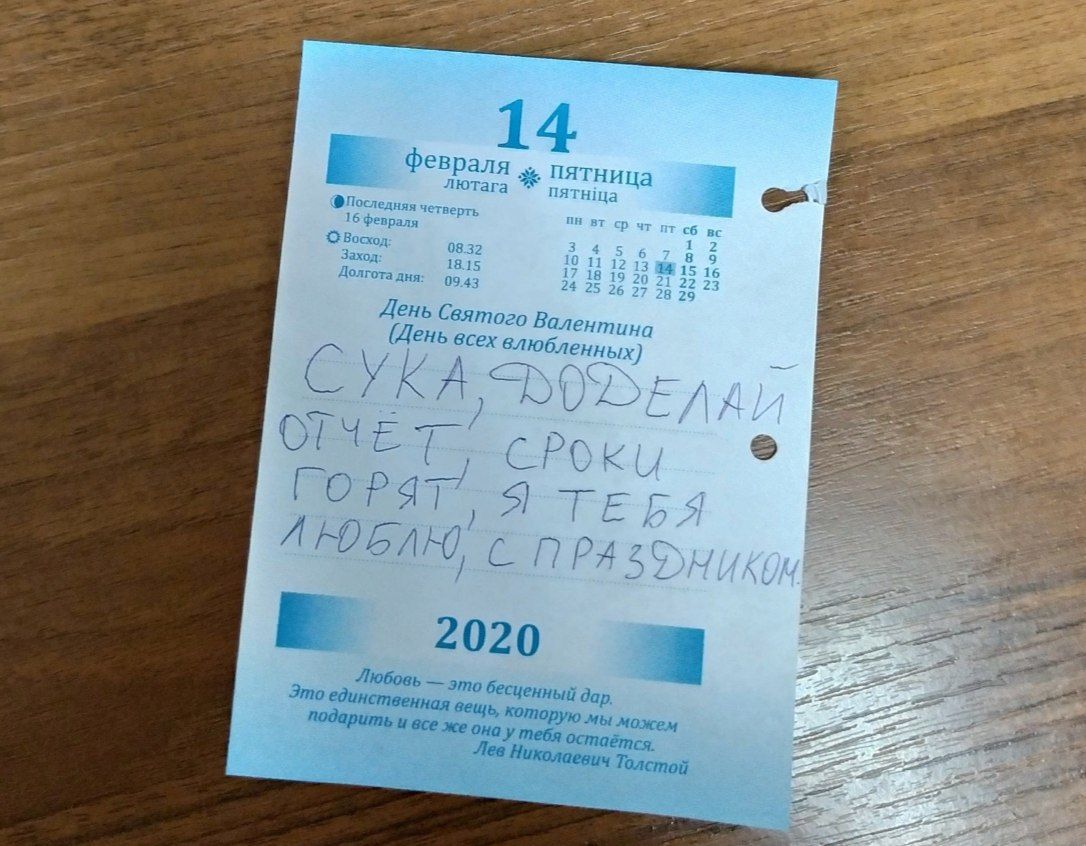 14
февраля пятница
лютага пятніца
Последняя четверть
16 февраля
Восход: 08.32
Заход: 18.15
Долгота дня: 09.43
пн вт ср чт пт сб вс
1 2
3 4 5 6 7 8 9
10 11 12 13 14 15 16
17 18 19 20 21 22 23
24 25 26 27 28 29
День Святого Валентина
(День всех влюбленных)
СУКА, ДОДЕЛАЙ
ОТЧЁТ, СРОКИ
ГОРЯТ, Я ТЕБЯ
ЛЮБЛЮ, С ПРАЗДНИКОМ.
2020
Любовь — это бесценный дар.
Это единственная вещь, которую мы можем
подарить и все же она у тебя остаётся.
Лев Николаевич Толстой